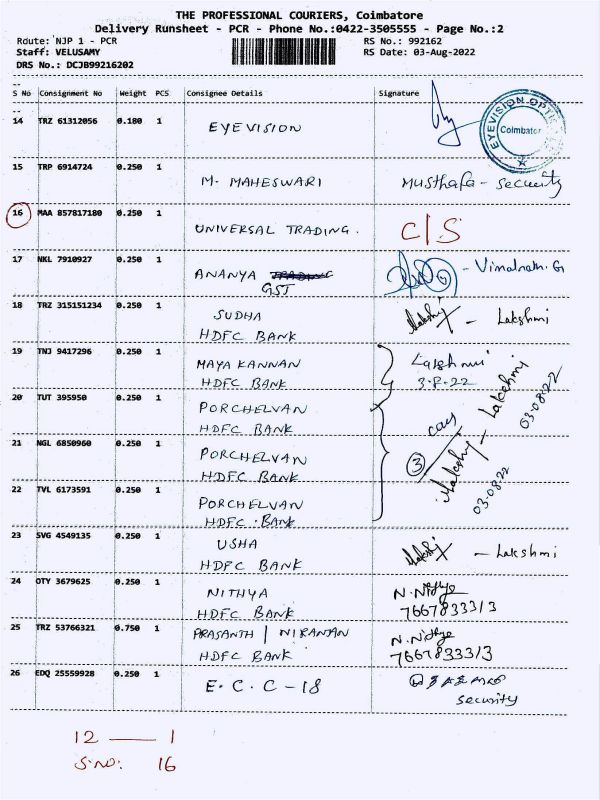 THE PROFESSIONAL COURIERS, Coimbatore
Delivery Runsheet - PCR - Phone No.:0422-3505555 - Page No.:2
Route: NJP 1 - PCR RS No.: 992162
Staff: VELUSAMY RS Date: 03-Aug-2022
DRS No.: DCJB99216202
S No Consignment No Weight PCS Consignee Details Signature
14 TRZ 61312056 0.180 1 EYEVISION
EYEVISION OPTI
Coimbator
15 TRP 6914724 0.250 1 M. MAHESWARI Musthafa - Security
16 MAA 857817180 0.250 1 UNIVERSAL TRADING. C/S
17 NKL 7910927 0.250 1 ANANYA - Vimalnath. G
GST
18 TRZ 315151234 0.250 1 SUDHA - Lakshmi
HDFC BANK
19 TNJ 9417296 0.250 1 MAYA KANNAN Lakshmi
HDFC BANK 3-8-22
20 TUT 395950 0.250 1 PORCHELVAN - Lakshmi
HDFC BANK 03-08-22
21 NGL 6850960 0.250 1 PORCHELVAN 3
HDFC BANK
22 TVL 6173591 0.250 1 PORCHELVAN 03-08-22
HDFC BANK
23 SVG 4549135 0.250 1 USHA - Lakshmi
HDFC BANK
24 OTY 3679625 0.250 1 NITHYA N. Nithya
HDFC BANK 7667833313
25 TRZ 53766321 0.750 1 PRASANTH | NIRANJAN N. Nithya
HDFC BANK 7667833313
26 EDQ 25559928 0.250 1 E. C. C - 18
security
12 — 1
S.NO: 16